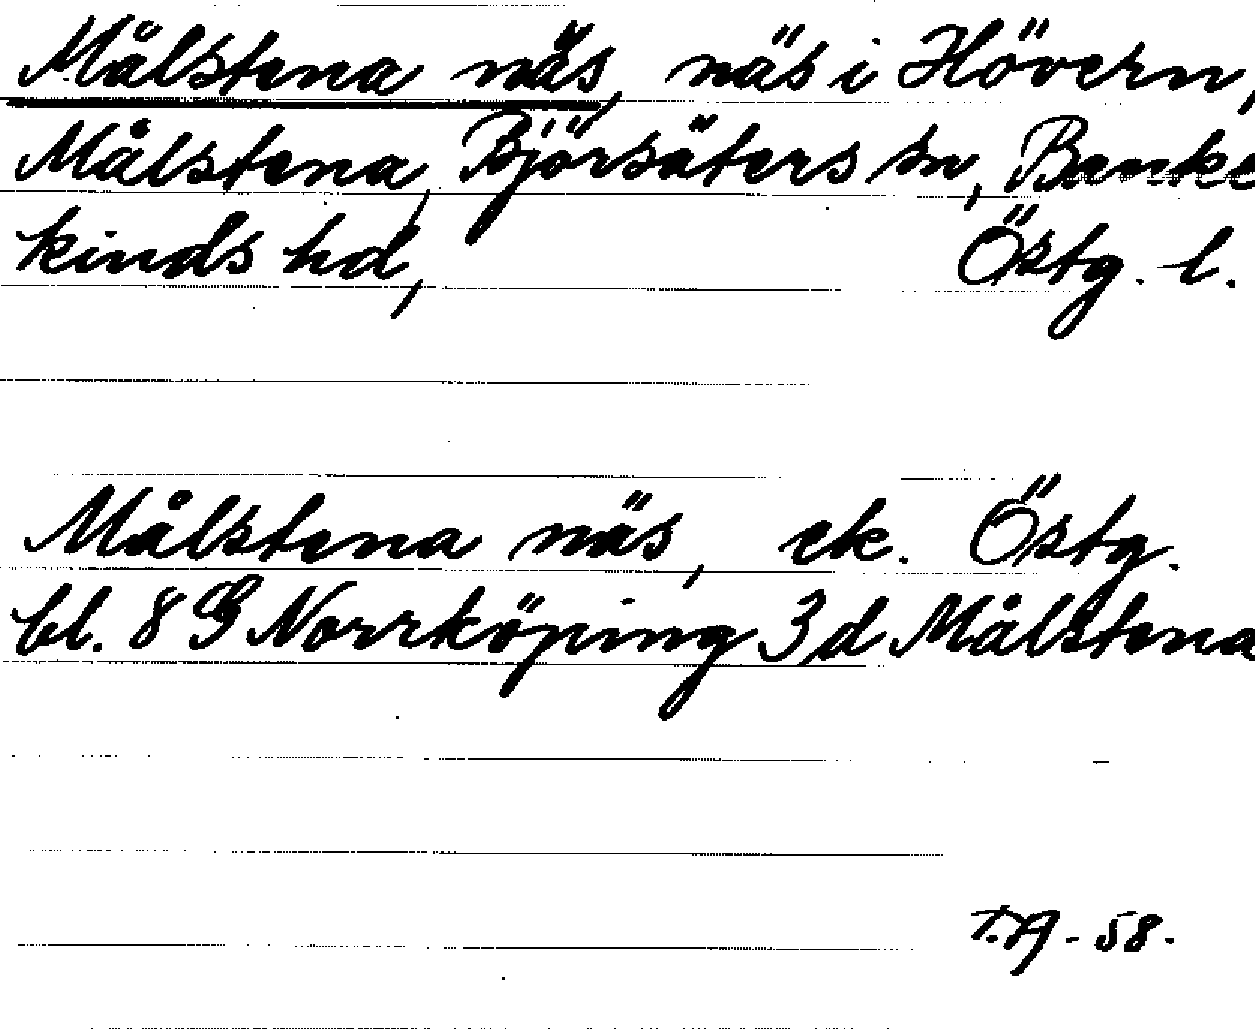 Målstena näs, näs i Hövern,
Målstena, Björsäters sn, Banke
kinds hd, Östg. l.
Målstena näs, ek. Östg.
bl. 8 G Norrköping 3 d Målstena
T.A. - 58.